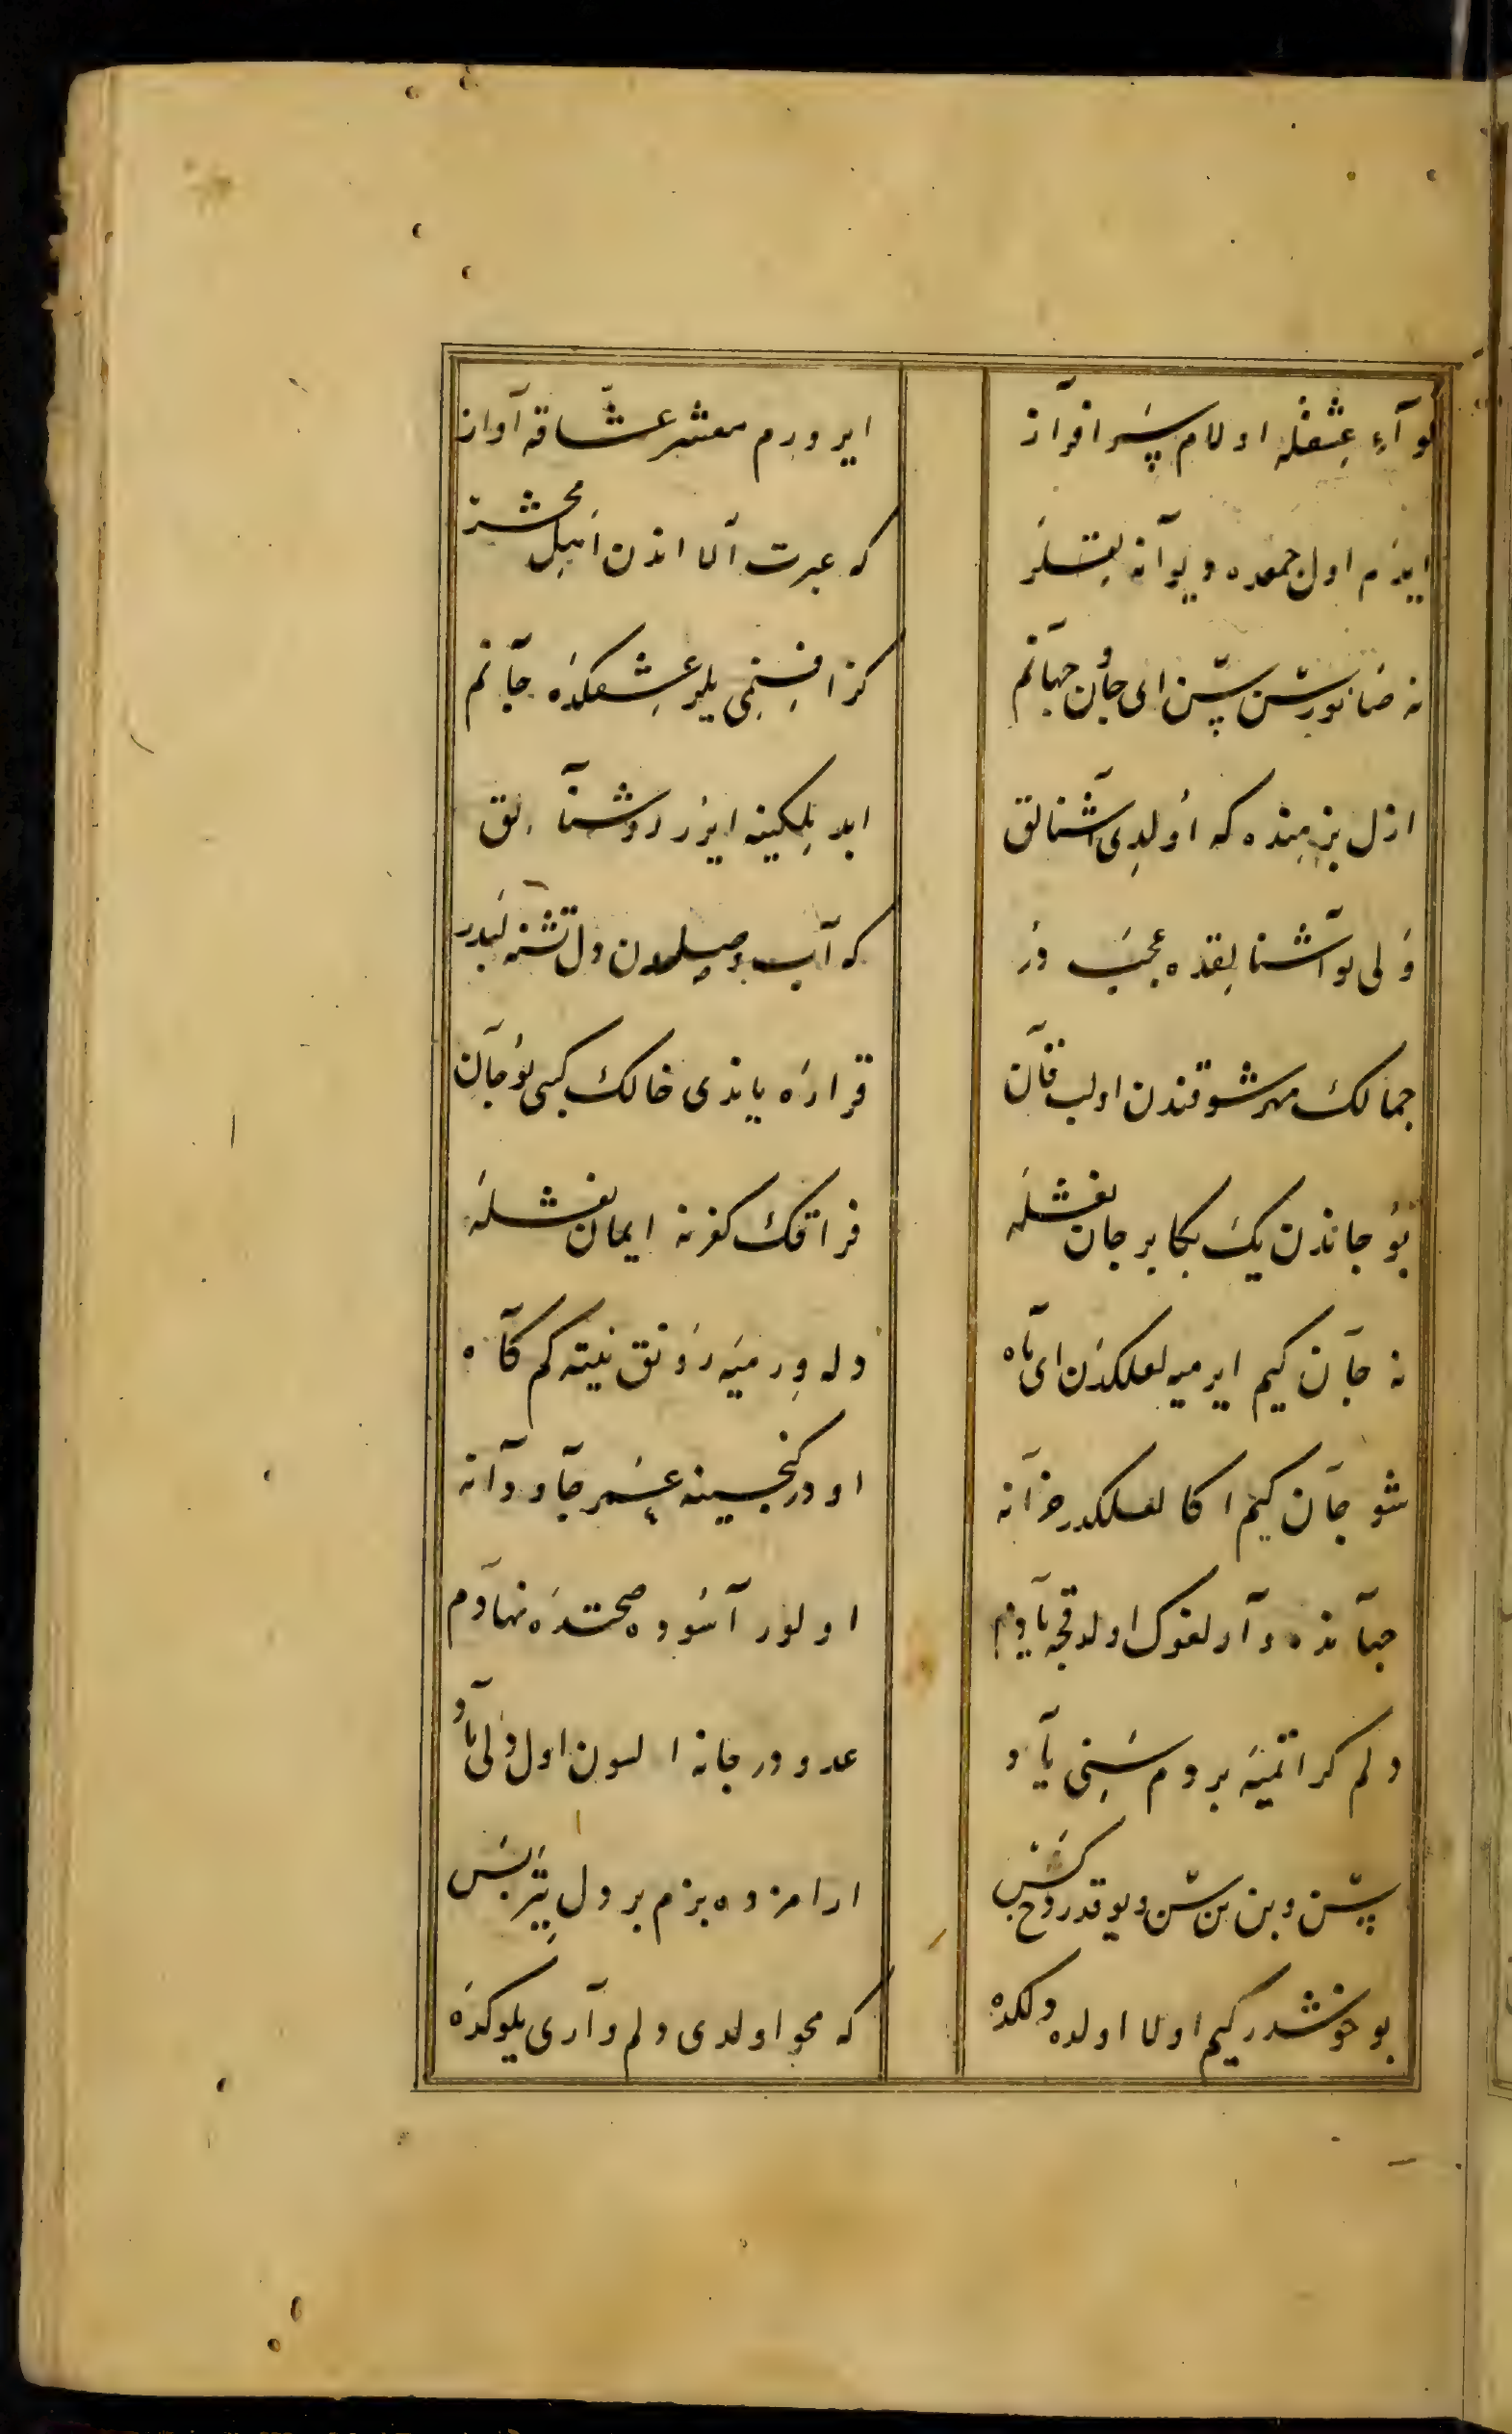 لوآء عشقله اولام سرافراز
ایرورم معشر عشاقه آواز
ایدم اول جمعده دیوآنه لقلر
که عبرت آلا اندن اهیل محشر
نه ضانورسن سن ای جٰان جهانم
کز افسنمی یلر عشقکده جآنم
ازل بزمنده که اولدی آشنالق
ابد بلکینه ایرر روشنآلق
ولی بو آشنالقده عجب در
که آب وصلدن دل تشنه لبدر
جمالک مهر شوقندن اولب قان
قراره یاندی خالک کبی بو جآن
بو جاندن یک بکا بر جان بغشله
فراقک کفرنه ایمان بغشله
نه جآن کیم ایرمیه لعلکدن ای ماه
دله ورمیه رونق نیته کم کآه
شو جآن کیم اکا لعلکدر خزآنه
اودر کنجینه عمر جآودآنه
جهآنده وآرلغوک اولدقجه یادم
اولور آسوده صحتده نهادم
دلم کر اتمیه بر دم سنی یآد
عدودر جانه السون اول دلی باد
سن و بن سن و یوقدر کس
ارامزده بزم بر دل یتر بس
بو خوشدر کیم اولا اولده دلکده
که محو اولدی دلم وآری یلوکده